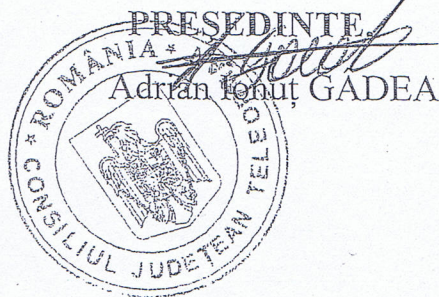 PREŞEDINTE,
Adrian Ionuţ GADEA
* ROMÂNIA *
CONSILIUL JUDEŢEAN TELEO